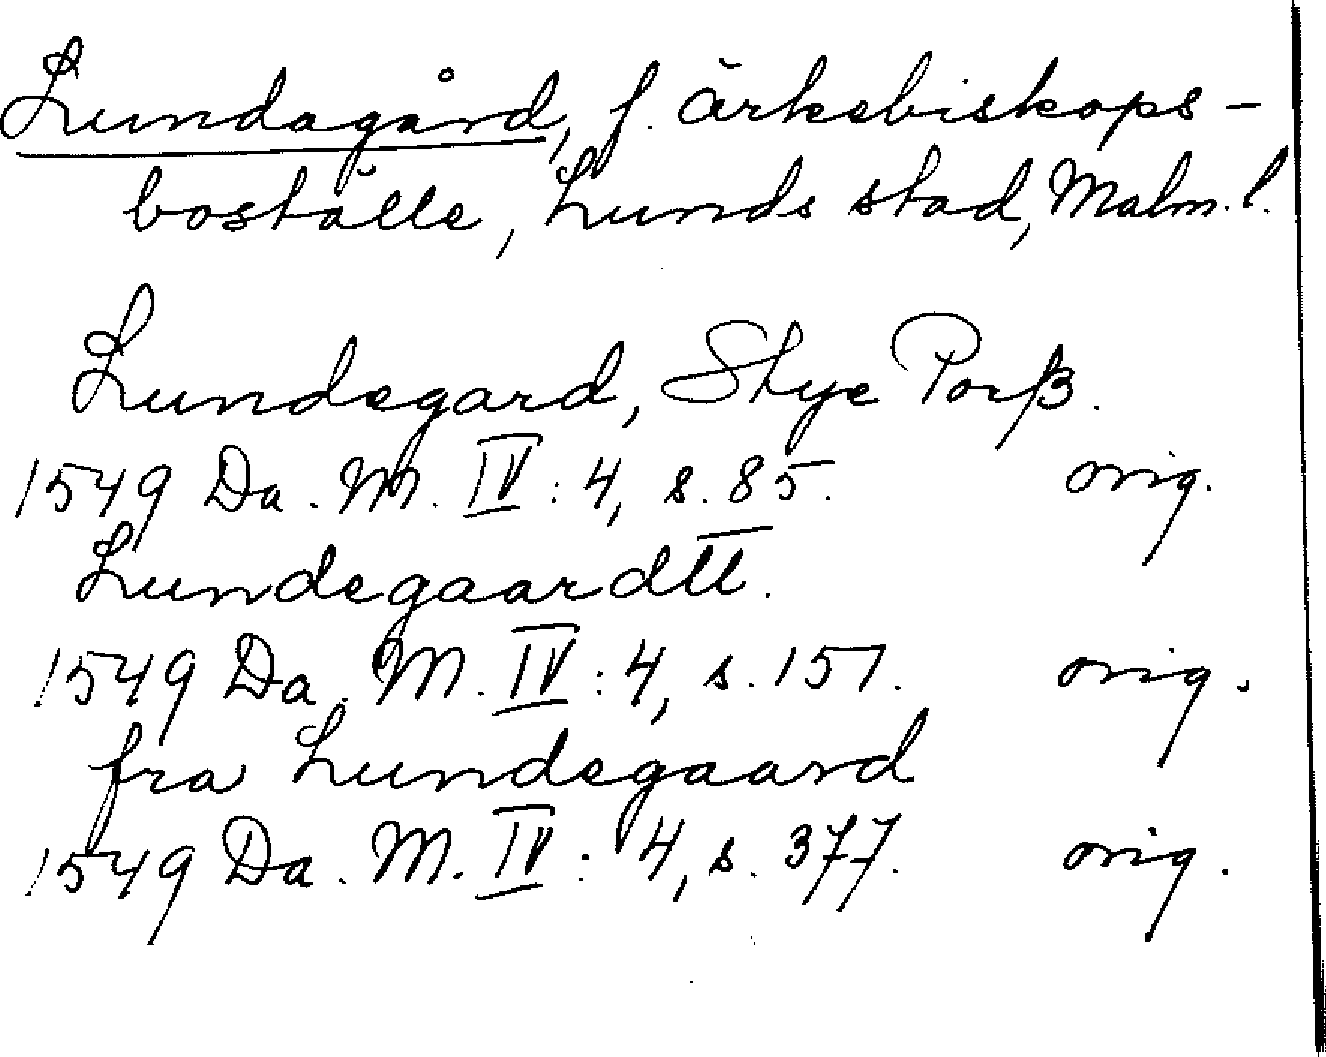 Lundagård, f. ärkebiskops-
boställe, Lunds stad, Malm. l.
Lundegard, Stye Porß.
1549 Da. M. IV : 4, s. 85. orig.
Lundegaardtt.
1549 Da. M. IV : 4, s. 157. orig.
fra Lundegaard
1549 Da. M. IV : 4, s. 377. orig.